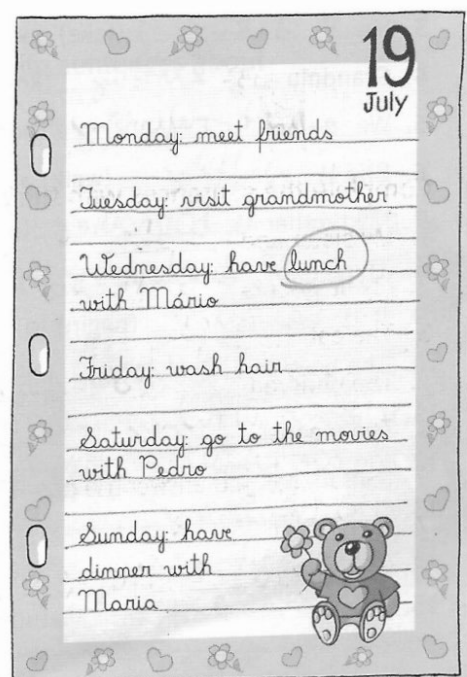 19
July
Monday: meet friends
Tuesday: visit grandmother
Wednesday: have lunch
with Mário
Friday: wash hair
Saturday: go to the movies
with Pedro
Sunday: have
dinner with
Maria